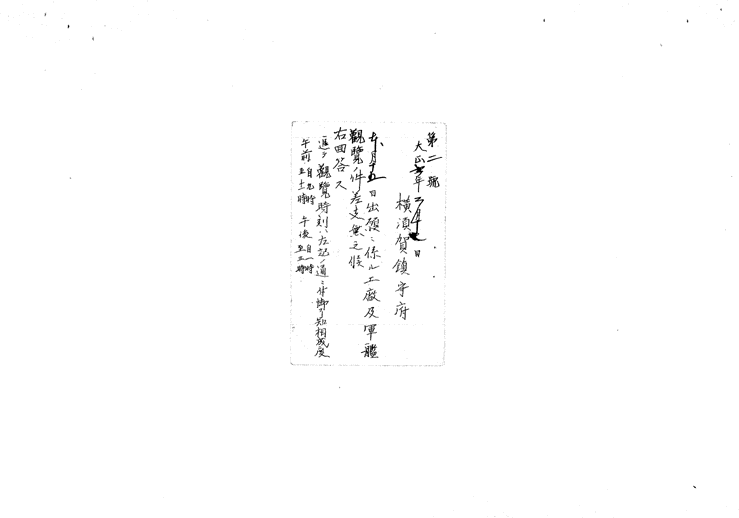 第二號
大正六年二月 日
横須賀鎮守府
月十五日出願ニ係ル工廠及軍艦
觀覽ノ件差支無之候
右回答ス
追テ觀覽時刻ハ左記ノ通ニ付御了知相成度
午前 自九時 至十一時 午後 自一時 至三時